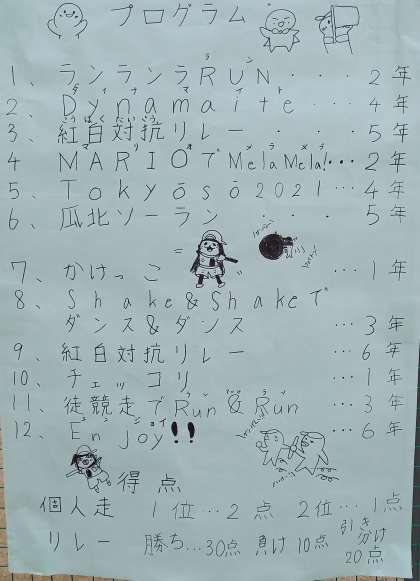 プログラム
1、ランランラRUN・・・2年
2、Dynamaite・・・4年
3、紅白対抗リレー・・・5年
4 MARIOでMelaMela!・・・2年
5、Tokyōsō2021・・・4年
6、瓜北ソーラン・・・5年
7、かけっこ・・・1年
8、Shake&Shakeで
ダンス&ダンス・・・3年
9、紅白対抗リレー・・・6年
10、チェッコリ・・・1年
11、徒競走でRun&Run・・・3年
12、Enjoy!!・・・6年
得点
個人走 1位…2点 2位…1点
リレー 勝ち…30点 負け10点 引き分け20点